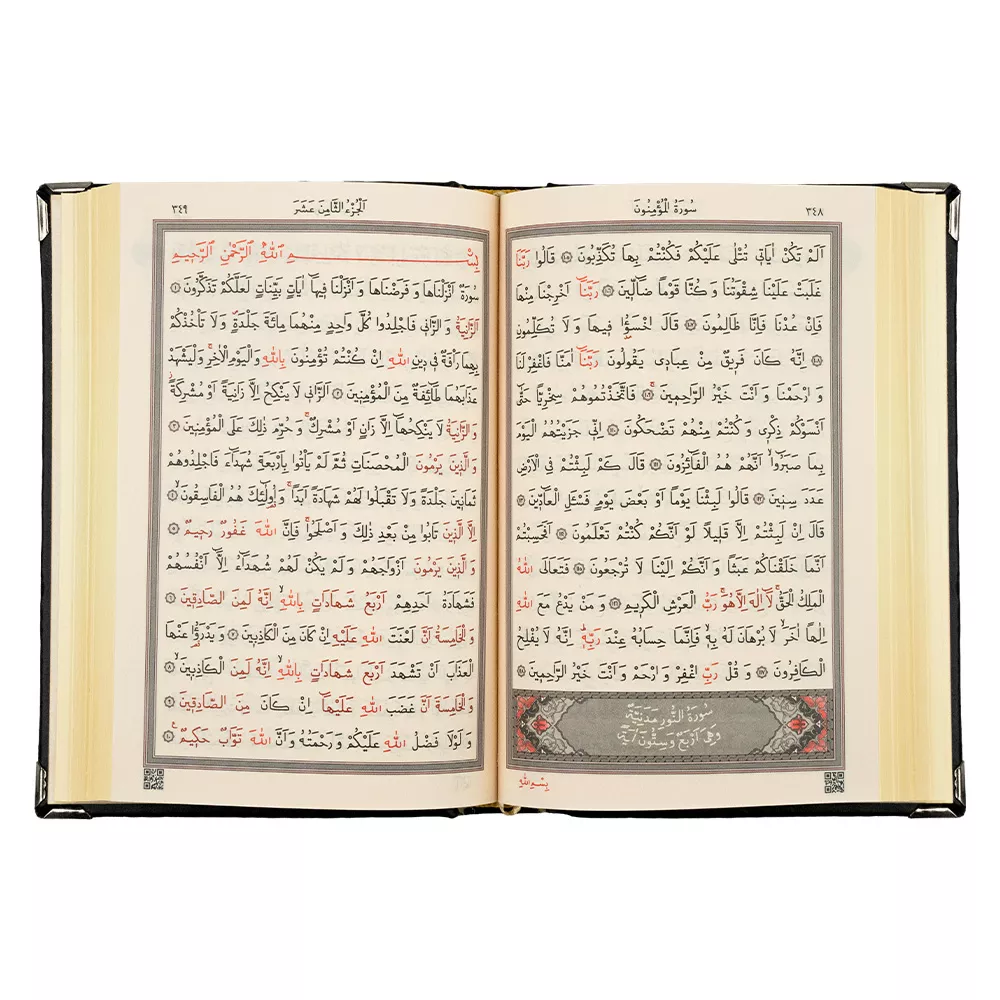 ٣٤٨
سُورَةُ الْمُؤْمِنُونَ
اَلَمْ تَكُنْ اٰيَات۪ي تُتْلٰى عَلَيْكُمْ فَكُنْتُمْ بِهَا تُكَذِّبُونَ ﴿١٠٥﴾ قَالُوا رَبَّنَا
غَلَبَتْ عَلَيْنَا شِقْوَتُنَا وَكُنَّا قَوْماً ضَٓالّ۪ينَ ﴿١٠٦﴾ رَبَّنَٓا اَخْرِجْنَا مِنْهَا
فَاِنْ عُدْنَا فَاِنَّا ظَالِمُونَ ﴿١٠٧﴾ قَالَ اخْسَؤُ۫ا ف۪يهَا وَلَا تُكَلِّمُونِ
﴿١٠٨﴾ اِنَّهُ كَانَ فَر۪يقٌ مِنْ عِبَاد۪ي يَقُولُونَ رَبَّنَٓا اٰمَنَّا فَاغْفِرْ لَنَا
وَارْحَمْنَا وَاَنْتَ خَيْرُ الرَّاحِم۪ينَ ﴿١٠٩﴾ فَاتَّخَذْتُمُوهُمْ سِخْرِياًّ حَتّٰٓى
اَنْسَوْكُمْ ذِكْر۪ي وَكُنْتُمْ مِنْهُمْ تَضْحَكُونَ ﴿١١٠﴾ اِنّ۪ي جَزَيْتُهُمُ الْيَوْمَ
بِمَا صَبَرُٓوا اَنَّهُمْ هُمُ الْفَٓائِزُونَ ﴿١١١﴾ قَالَ كَمْ لَبِثْتُمْ فِي الْاَرْضِ
عَدَدَ سِن۪ينَ ﴿١١٢﴾ قَالُوا لَبِثْنَا يَوْماً اَوْ بَعْضَ يَوْمٍ فَسْـَٔلِ الْعَٓادّ۪ينَ ﴿١١٣﴾
قَالَ اِنْ لَبِثْتُمْ اِلَّا قَل۪يلاً لَوْ اَنَّكُمْ كُنْتُمْ تَعْلَمُونَ ﴿١١٤﴾ اَفَحَسِبْتُمْ
اَنَّمَا خَلَقْنَاكُمْ عَبَثاً وَاَنَّكُمْ اِلَيْنَا لَا تُرْجَعُونَ ﴿١١٥﴾ فَتَعَالَى اللّٰهُ
الْمَلِكُ الْحَقُّۚ لَٓا اِلٰهَ اِلَّا هُوَۚ رَبُّ الْعَرْشِ الْكَر۪يمِ ﴿١١٦﴾ وَمَنْ يَدْعُ مَعَ اللّٰهِ
اِلٰهاً اٰخَرَۙ لَا بُرْهَانَ لَهُ بِه۪ۙ فَاِنَّمَا حِسَابُهُ عِنْدَ رَبِّه۪ۜ اِنَّهُ لَا يُفْلِحُ
الْكَافِرُونَ ﴿١١٧﴾ وَقُلْ رَبِّ اغْفِرْ وَارْحَمْ وَاَنْتَ خَيْرُ الرَّاحِم۪ينَ ﴿١١٨﴾
سُورَةُ النُّورِ مَدَنِيَّةٌ
وَهِيَ اَرْبَعٌ وَسِتُّونَ اٰيَةً
بِسْمِ اللّٰهِ
اَلْجُزْءُ الثَّامِنَ عَشَرَ
٣٤٩
بِسْمِ اللّٰهِ الرَّحْمٰنِ الرَّح۪يمِ
سُورَةٌ اَنْزَلْنَاهَا وَفَرَضْنَاهَا وَاَنْزَلْنَا ف۪يهَٓا اٰيَاتٍ بَيِّنَاتٍ لَعَلَّكُمْ تَذَكَّرُونَ ﴿١﴾
اَلزَّانِيَةُ وَالزَّان۪ي فَاجْلِدُوا كُلَّ وَاحِدٍ مِنْهُمَا مِائَةَ جَلْدَةٍۖ وَلَا تَأْخُذْكُمْ
بِهِمَا رَأْفَةٌ ف۪ي د۪ينِ اللّٰهِ اِنْ كُنْتُمْ تُؤْمِنُونَ بِاللّٰهِ وَالْيَوْمِ الْاٰخِرِۚ وَلْيَشْهَدْ
عَذَابَهُمَا طَٓائِفَةٌ مِنَ الْمُؤْمِن۪ينَ ﴿٢﴾ اَلزَّان۪ي لَا يَنْكِحُ اِلَّا زَانِيَةً اَوْ مُشْرِكَةًۘ
وَالزَّانِيَةُ لَا يَنْكِحُهَٓا اِلَّا زَانٍ اَوْ مُشْرِكٌۚ وَحُرِّمَ ذٰلِكَ عَلَى الْمُؤْمِن۪ينَ ﴿٣﴾
وَالَّذ۪ينَ يَرْمُونَ الْمُحْصَنَاتِ ثُمَّ لَمْ يَأْتُوا بِاَرْبَعَةِ شُهَدَٓاءَ فَاجْلِدُوهُمْ
ثَمَان۪ينَ جَلْدَةً وَلَا تَقْبَلُوا لَهُمْ شَهَادَةً اَبَداًۚ وَاُو۬لٰٓئِكَ هُمُ الْفَاسِقُونَۙ ﴿٤﴾
اِلَّا الَّذ۪ينَ تَابُوا مِنْ بَعْدِ ذٰلِكَ وَاَصْلَحُواۚ فَاِنَّ اللّٰهَ غَفُورٌ رَح۪يمٌ ﴿٥﴾
وَالَّذ۪ينَ يَرْمُونَ اَزْوَاجَهُمْ وَلَمْ يَكُنْ لَهُمْ شُهَدَٓاءُ اِلَّٓا اَنْفُسُهُمْ
فَشَهَادَةُ اَحَدِهِمْ اَرْبَعُ شَهَادَاتٍ بِاللّٰهِۙ اِنَّهُ لَمِنَ الصَّادِق۪ينَ ﴿٦﴾
وَالْخَامِسَةُ اَنَّ لَعْنَتَ اللّٰهِ عَلَيْهِ اِنْ كَانَ مِنَ الْكَاذِب۪ينَ ﴿٧﴾ وَيَدْرَؤُ۬ا عَنْهَا
الْعَذَابَ اَنْ تَشْهَدَ اَرْبَعَ شَهَادَاتٍ بِاللّٰهِۙ اِنَّهُ لَمِنَ الْكَاذِب۪ينَۙ ﴿٨﴾
وَالْخَامِسَةَ اَنَّ غَضَبَ اللّٰهِ عَلَيْهَٓا اِنْ كَانَ مِنَ الصَّادِق۪ينَ ﴿٩﴾
وَلَوْلَا فَضْلُ اللّٰهِ عَلَيْكُمْ وَرَحْمَتُهُ وَاَنَّ اللّٰهَ تَوَّابٌ حَك۪يمٌ۟ ﴿١٠﴾